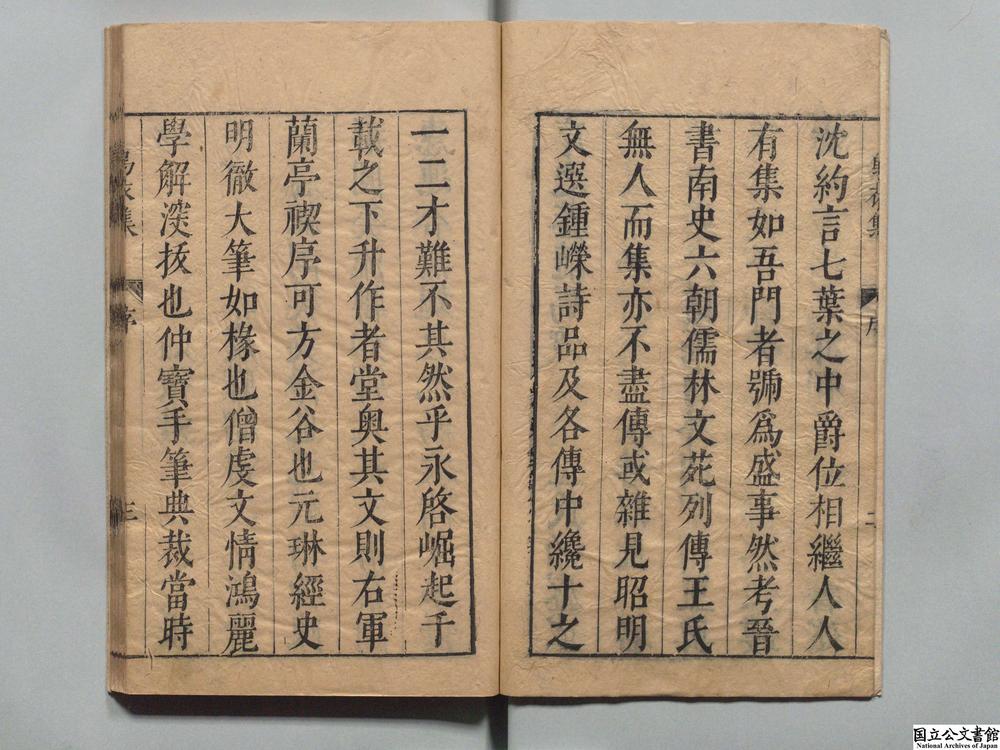 沈約言七葉之中爵位相繼人人
有集如吾門者號爲盛事然考晉
書南史六朝儒林文苑列傳王氏
無人而集亦不盡傳或雜見昭明
文選鍾嶸詩品及各傳中纔十之
一二才難不其然乎永啓崛起千
載之下升作者堂奥其文則右軍
蘭亭禊序可方金谷也元琳經史
明徹大筆如椽也僧虔文情鴻麗
學解深拔也仲寶手筆典裁當時
集
序
三
国立公文書館
National Archives of Japan